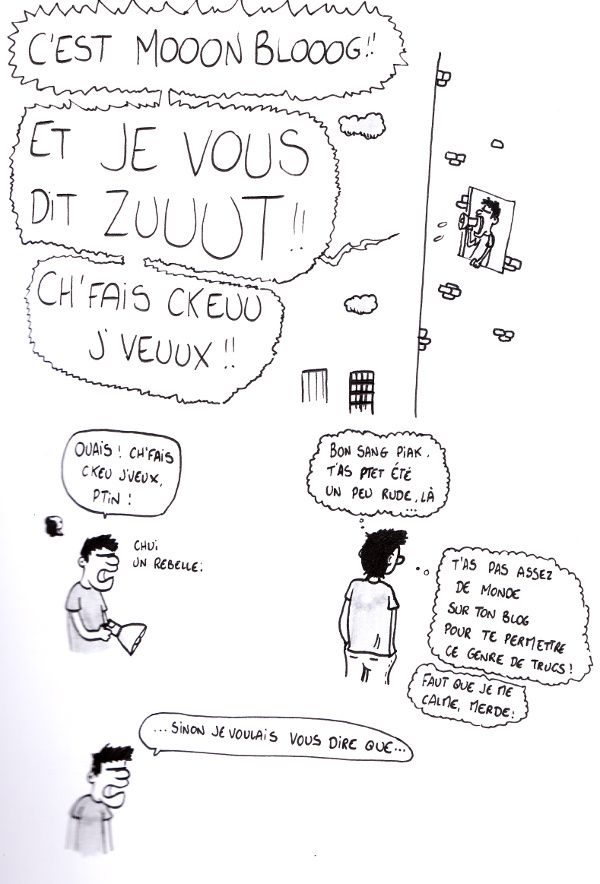 C'EST MOOON BLOOOG!!
ET JE VOUS
DIT ZUUUT!!
CH'FAIS CKEUU
J'VEUUX!!
OUAIS! CH'FAIS
CKEU J'VEUX,
PTIN!
CHUI
UN REBELLE.
BON SANG PIAK.
T'AS PTET ÉTÉ
UN PEU RUDE, LÀ
...
T'AS PAS ASSEZ
DE MONDE
SUR TON BLOG
POUR TE PERMETTRE
CE GENRE DE TRUCS!
FAUT QUE JE ME
CALME, MERDE.
...SINON JE VOULAIS VOUS DIRE QUE...